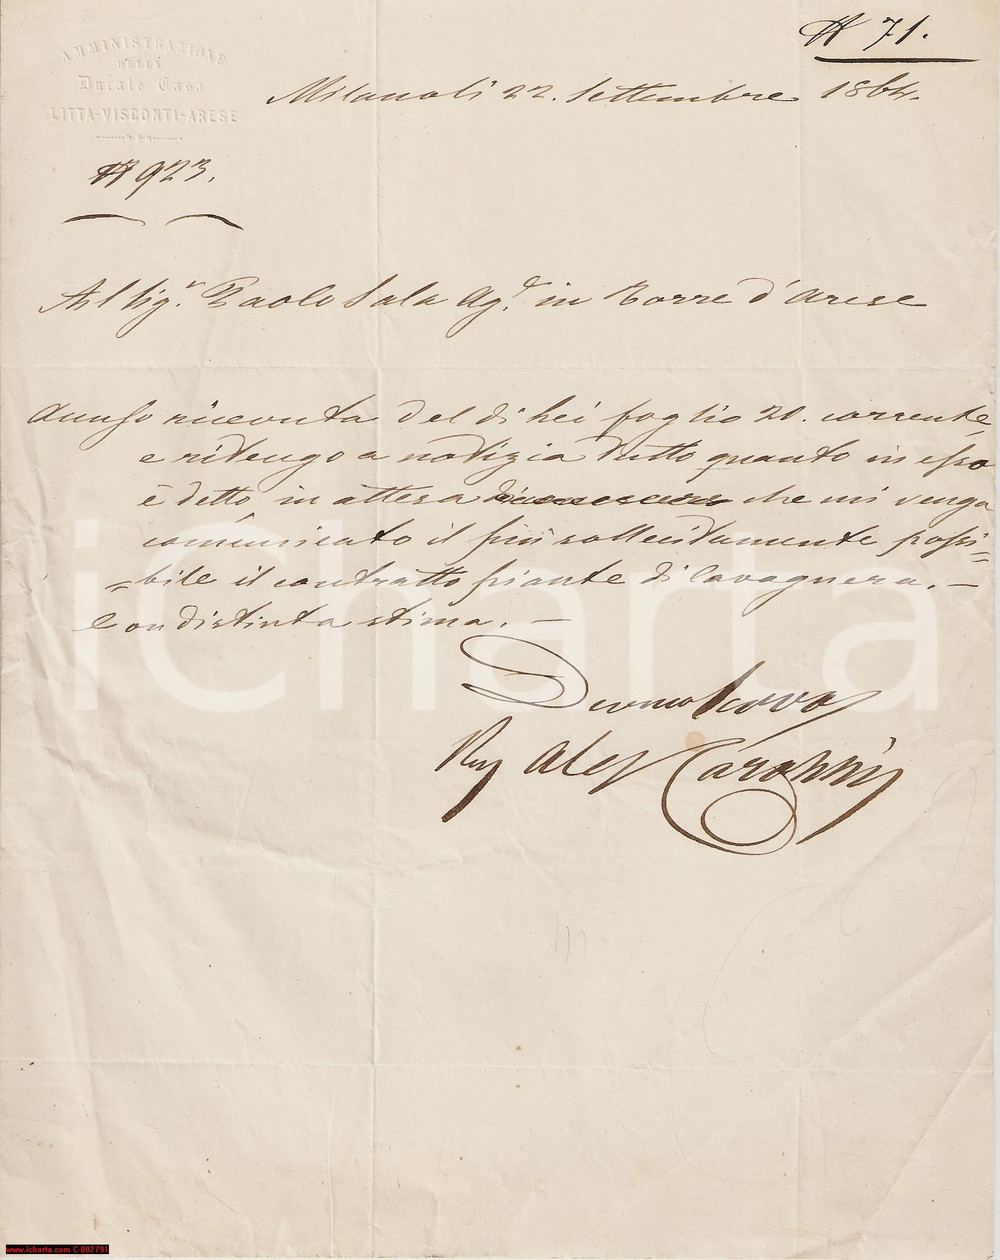 N 71.
AMMINISTRAZIONE
DELLA
Ducale Casa
LITTA-VISCONTI-ARESE
Milano li 22. Settembre 1864.
N 923.
Al Sigr. Paolo Sala Agte. in Torre d'Arese
Accuso ricevuta del di Lei foglio 20. corrente,
e ritengo a notizia tutto quanto in esso
è detto in attesa che mi venga
comunicato il più sollecitamente possi=
=bile il contratto piante di Cavagnera.-
Con distinta stima. -
Devmo Servo
Rag Aless Caronni
iCharta
www.icharta.com C-002791